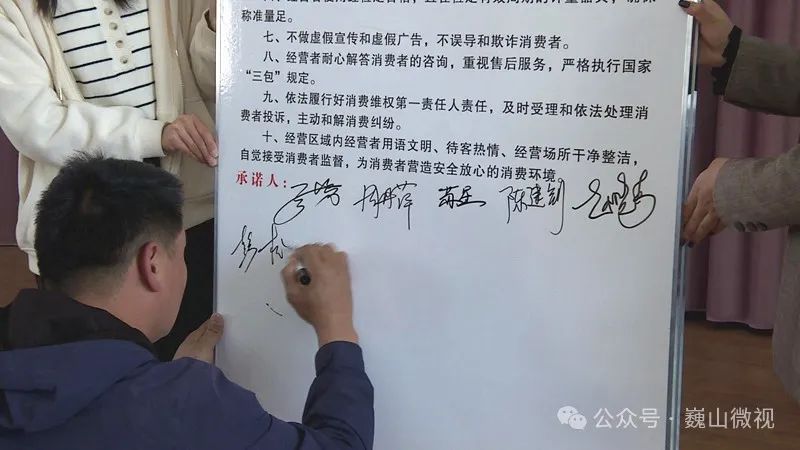 称准量足。
七、不做虚假宣传和虚假广告，不误导和欺诈消费者。
八、经营者耐心解答消费者的咨询，重视售后服务，严格执行国家
“三包”规定。
九、依法履行好消费维权第一责任人责任，及时受理和依法处理消
费者投诉，主动和解消费纠纷。
十、经营区域内经营者用语文明、待客热情、经营场所干净整洁，
自觉接受消费者监督，为消费者营造安全放心的消费环境。
承诺人：
陈建钊
公众号·巍山微视